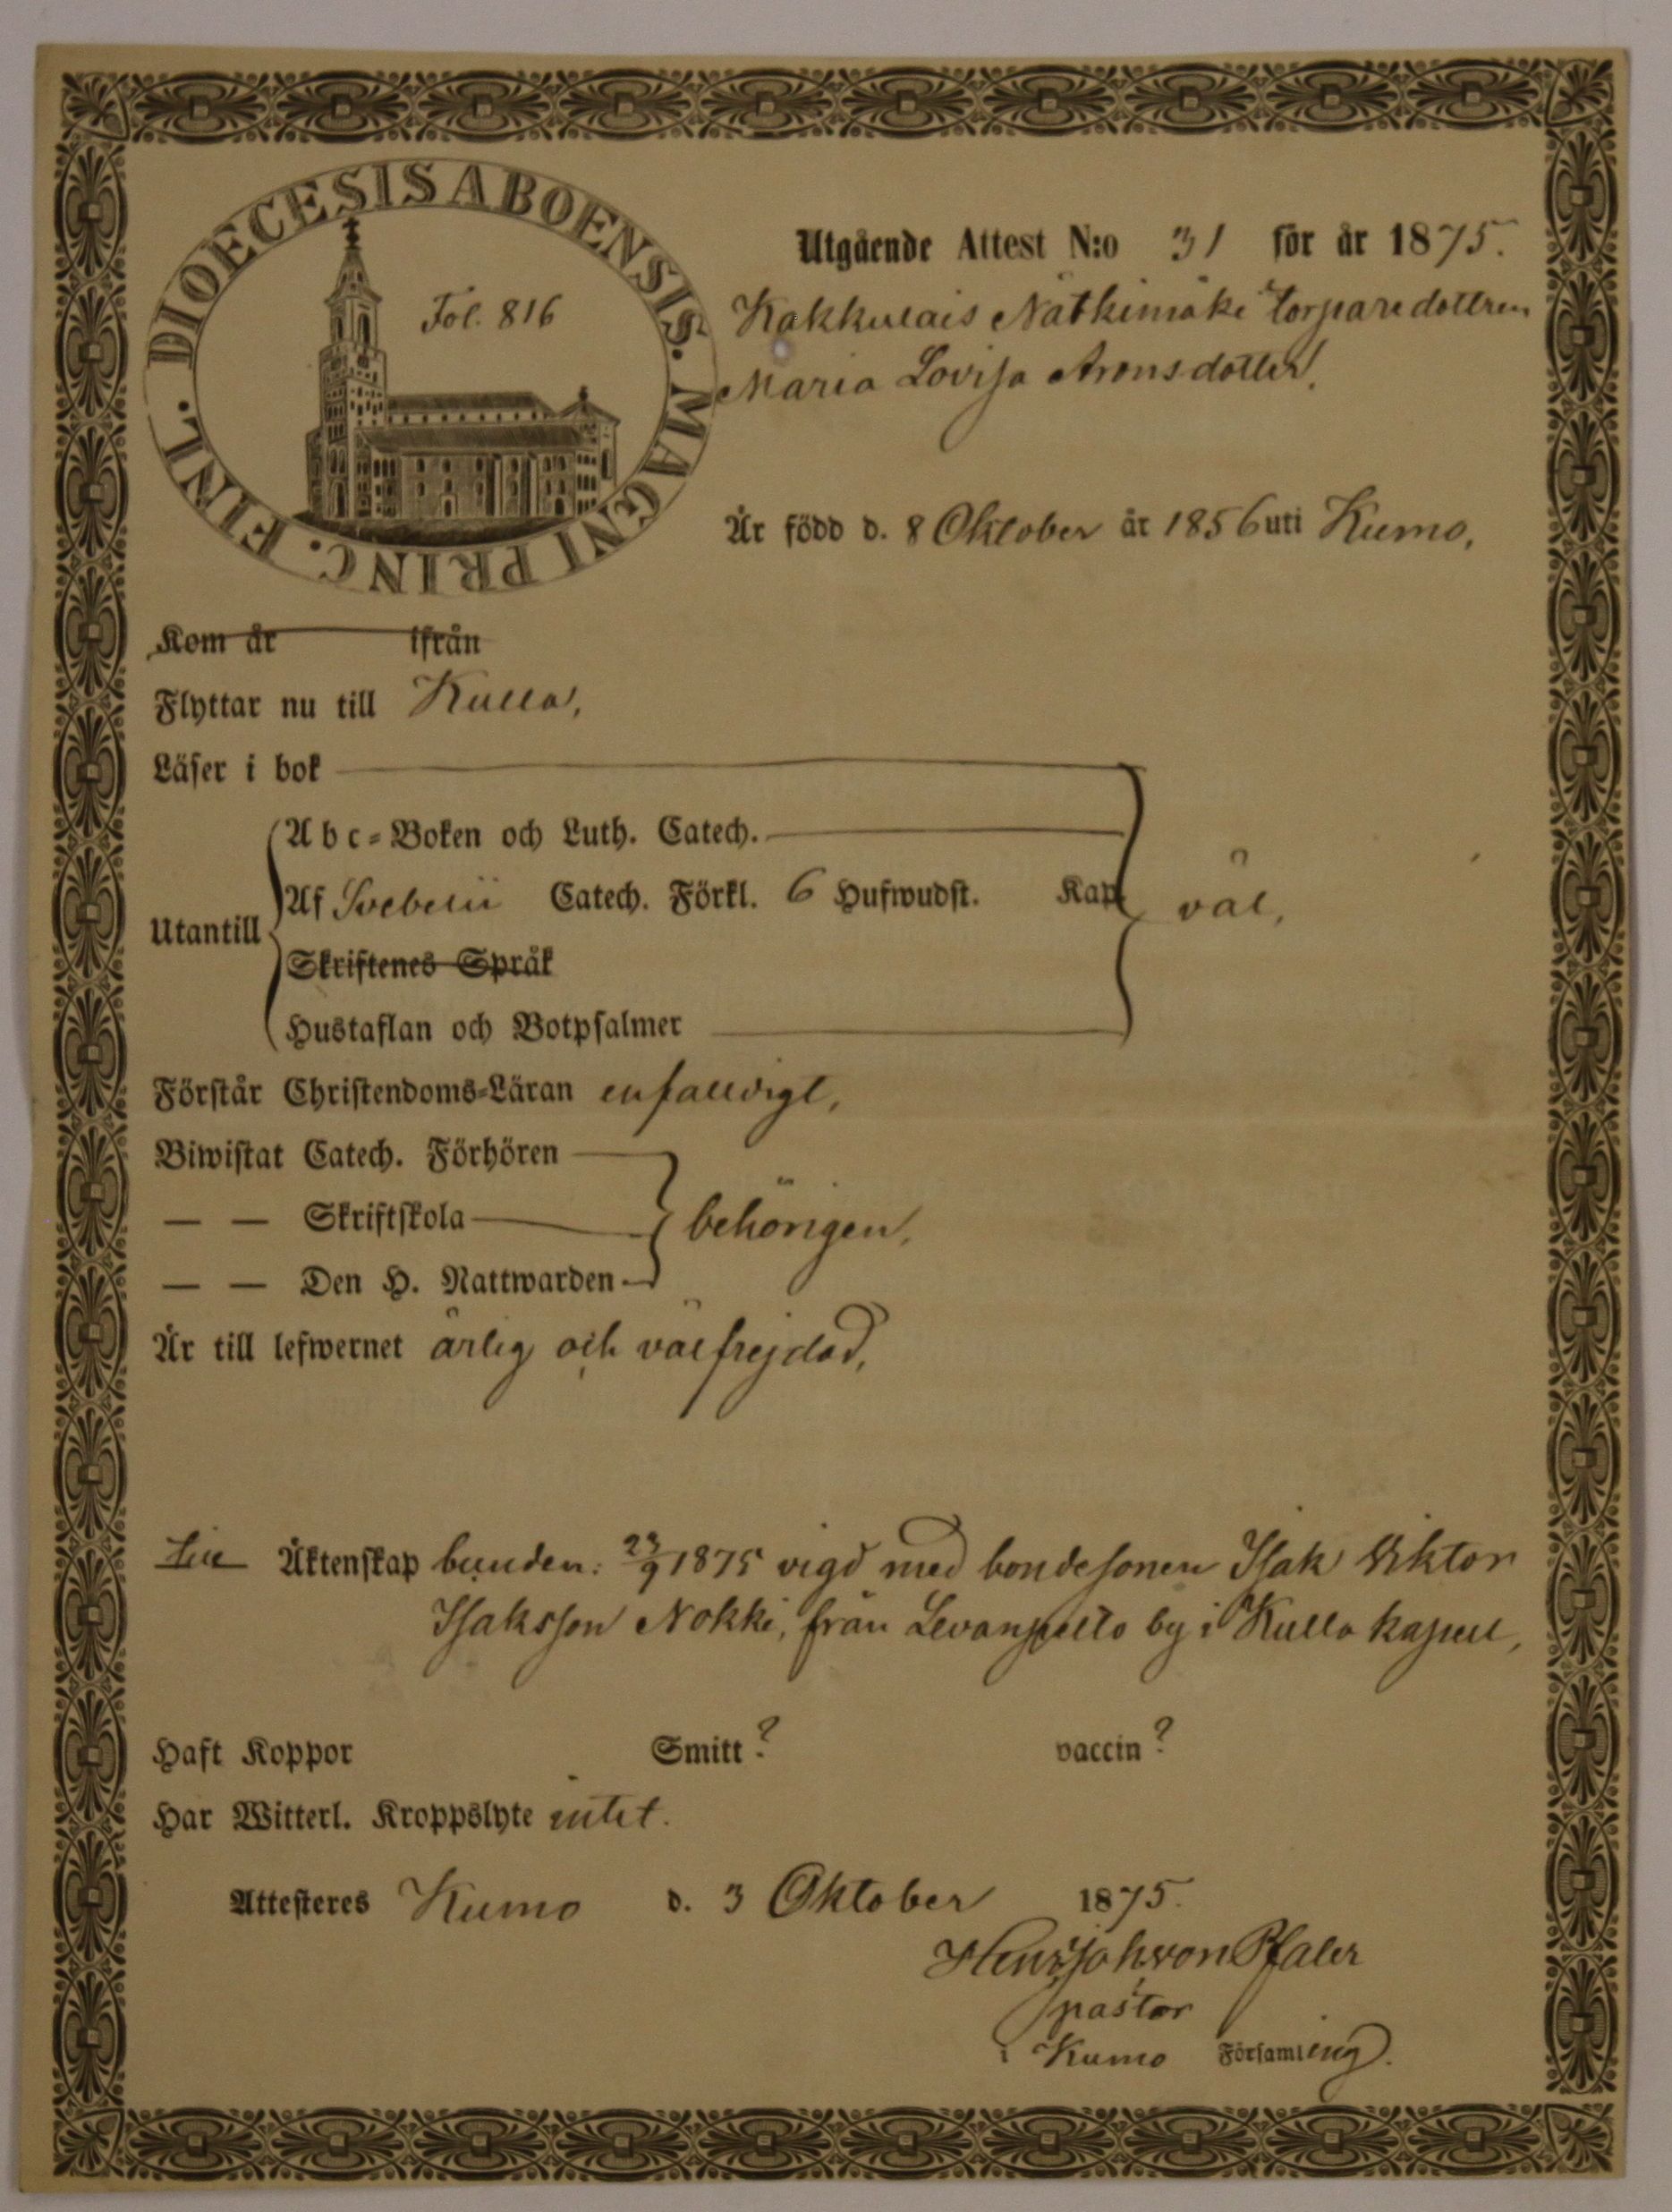 DIOECESIS ABOENSIS. MAGNI PRINC. FINL.
Fol. 816
Utgående Attest N:o 31 för år 1875.
Kakkulais Nätkimäki torparedottren
Maria Lovisa Aronsdotter,
Är född d. 8 Oktober år 1856 uti Kumo,
Kom år ifrån
Flyttar nu till Kulla,
Läser i bok
Utantill
Abc-Boken och Luth. Catech.
Af Svebelii Catech. Förkl. 6 Hufwudst. Kap. väl,
Skriftenes Språk
Hustaflan och Botpsalmer
Förstår Christendoms-Läran enfaldigt,
Biwistat Catech. Förhören
— — Skriftskola behörigen,
— — Den H. Nattwarden
Är till lefwernet ärlig och välfrejdad,
Till Äktenskap bunden: 23/9 1875 vigd med bondesonen Isak Viktor
Isaksson Nokki, från Levanpelto by i Kulla kapell,
Haft Koppor Smitt? vaccin?
Har Witterl. Kroppslyte intet.
Attesteres Kumo d. 3 Oktober 1875.
Henr Joh von Pfaler
pastor
i Kumo Församling.